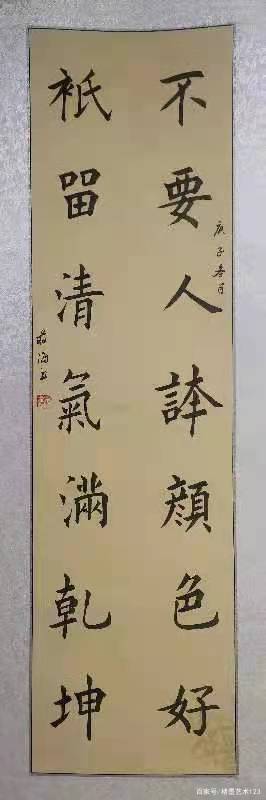 不要人誇顔色好
庚子冬月
衹畱清氣滿乾坤
百家号/精墨艺术123